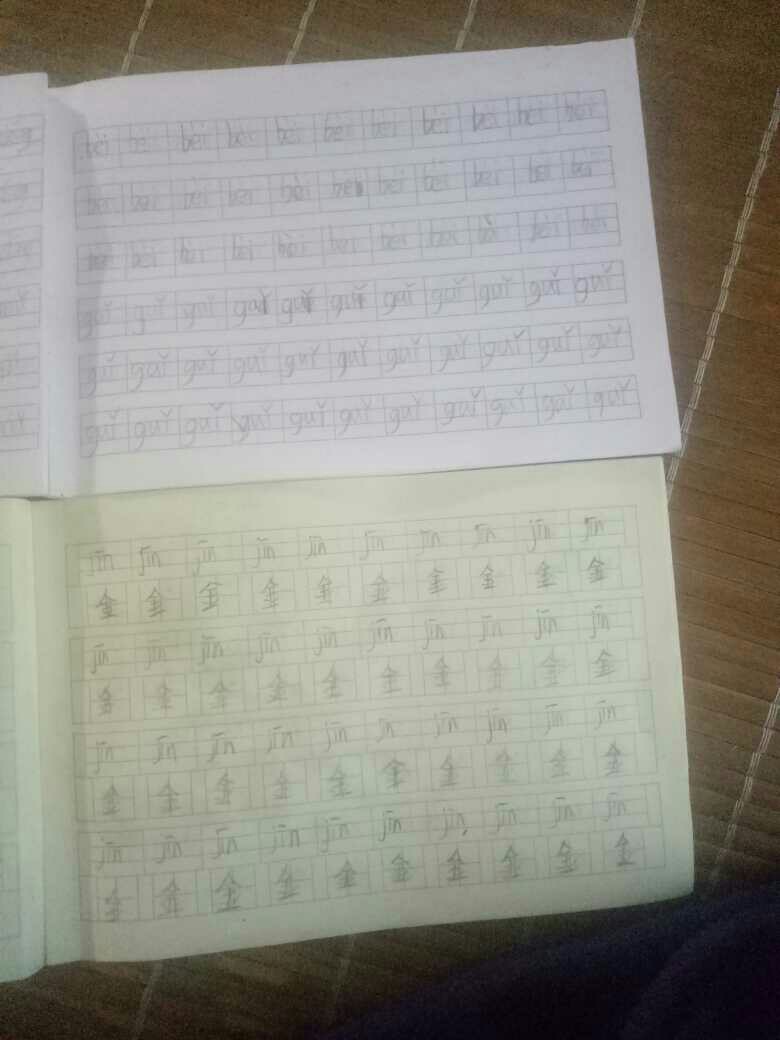 bèi bèi bèi bèi bèi bèi bèi bèi bèi bèi bèi
bèi bèi bèi bèi bèi bèi bèi bèi bèi bèi bèi
bèi bèi bèi bèi bèi bèi bèi bèi bèi bèi bèi
guǐ guǐ guǐ guǐ guǐ guǐ guǐ guǐ guǐ guǐ guǐ
guǐ guǐ guǐ guǐ guǐ guǐ guǐ guǐ guǐ guǐ guǐ
guǐ guǐ guǐ guǐ guǐ guǐ guǐ guǐ guǐ guǐ guǐ
jīn jīn jīn jīn jīn jīn jīn jīn jīn jīn
金 金 金 金 金 金 金 金 金 金
jīn jīn jīn jīn jīn jīn jīn jīn jīn jīn
金 金 金 金 金 金 金 金 金 金
jīn jīn jīn jīn jīn jīn jīn jīn jīn jīn
金 金 金 金 金 金 金 金 金 金
jīn jīn jīn jīn jīn jīn jīn jīn jīn jīn
金 金 金 金 金 金 金 金 金 金